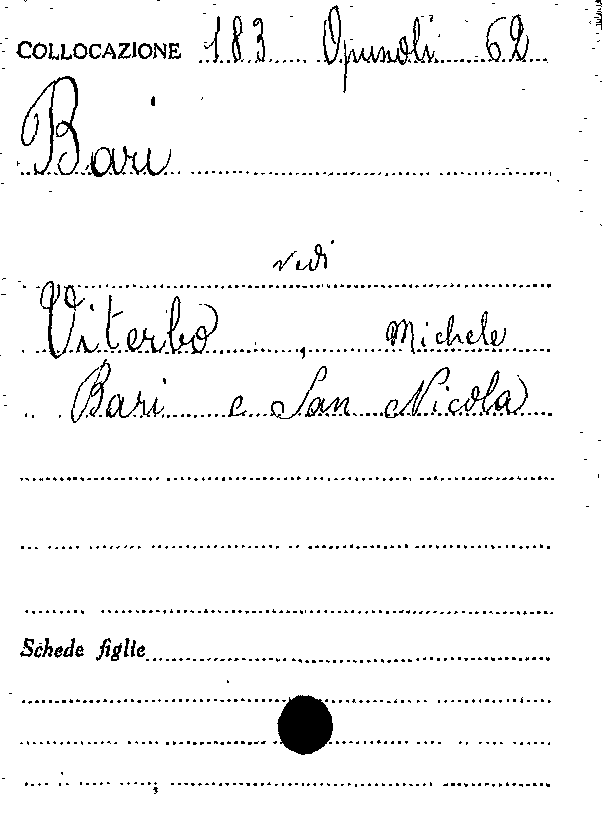 COLLOCAZIONE 183 Opuscoli 62
Bari
vedi
Viterbo, Michele
Bari e San Nicola
Schede figlie